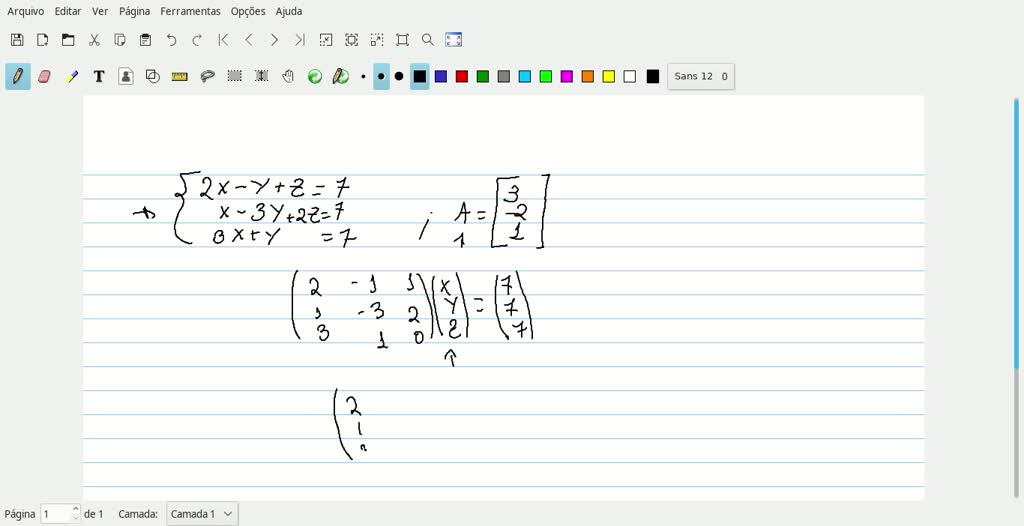 Arquivo Editar Ver Página Ferramentas Opções Ajuda
T Sans 12 0
2x - y + z = 7
x - 3y + 2z = 7 ; A = [3
3x + y = 7 1 -2
1]
(2 -1 1) (x) = (7)
1 -3 2 y 7
3 1 0 z 7
↑
(2
1
Página 1 de 1 Camada: Camada 1